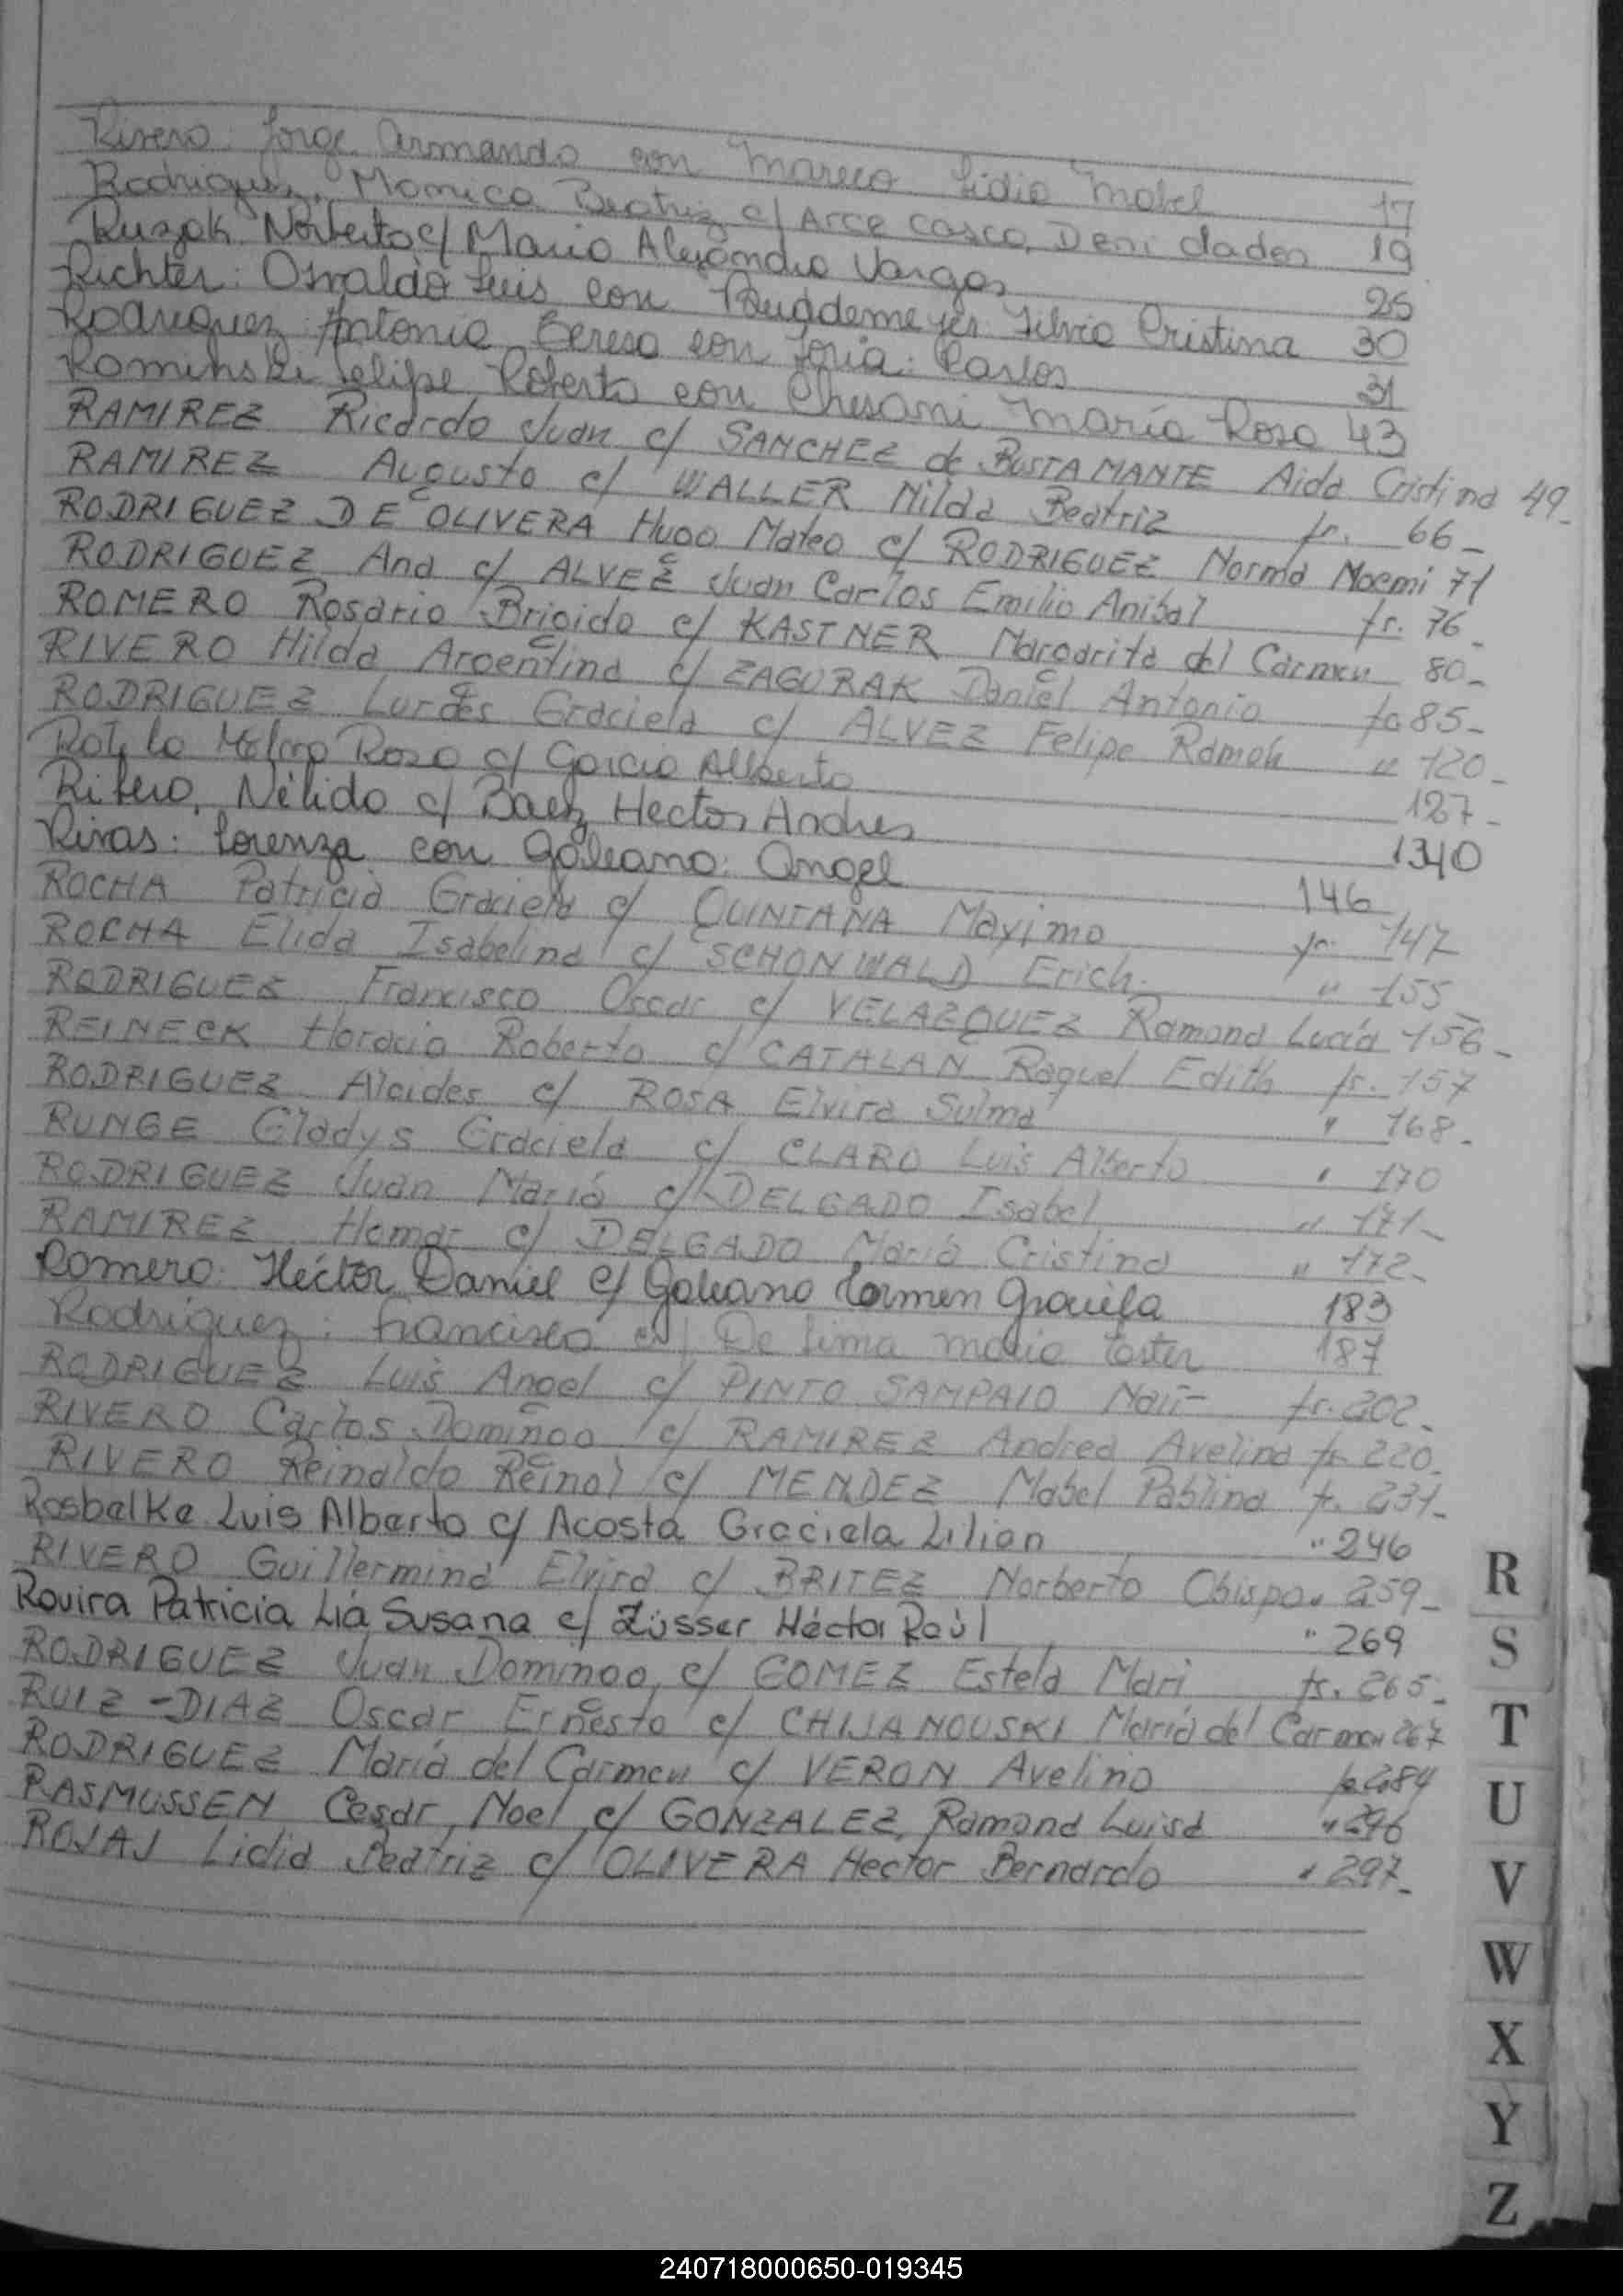 Rivero: Jorge Armando con Mareco Lidia Mabel 17
Rodriguez, Monica Beatriz c/ Arce Casco, Deni dades 19
Ruszak Norberto c/ Maria Alejandra Vargas 25
Richter: Osvaldo Luis con Silvia Cristina 30
Rodriguez: Antonia Teresa con Soria: Carlos 31
Rominski Felipe Roberto con Chesani María Rosa 43
RAMIREZ Ricardo Juan c/ SANCHEZ de BUSTAMANTE Aida Cristina 49-
RAMIREZ Augusto c/ WALLER Nilda Beatriz fs. 66-
RODRIGUEZ DE OLIVERA Hugo Mateo c/ RODRIGUEZ Norma Noemi 71
RODRIGUEZ Ana c/ ALVEZ Juan Carlos Emilio Anibal fs. 76-
ROMERO Rosario Brigido c/ KASTNER Margarita del Carmen 80-
RIVERO Hilda Argentina c/ ZAGURAK Daniel Antonio fs 85-
RODRIGUEZ Lurdes Graciela c/ ALVEZ Felipe Ramon " 120-
Rosa c/ Garcia Alberto 127-
Ribero, Nélida c/ Baez Hector Andres 1340
Rivas: Lorenza con Galeano: Angel 146
ROCHA Patricia Graciela c/ QUINTANA Maximo fs. 147
ROCHA Elida Isabelina c/ SCHONWALD Erich. " 155-
RODRIGUEZ Francisco Oscar c/ VELAZQUEZ Ramona Lucía 156-
REINECK Horacio Roberto c/ CATALAN Raquel Edith fs. 157
RODRIGUEZ Alcides c/ ROSA Elvira Sulma " 168-
RUNGE Gladys Graciela c/ CLARO Luis Alberto " 170
RODRIGUEZ Juan María c/ DELGADO Isabel " 171-
RAMIREZ Homar c/ DELGADO María Cristina " 172-
Romero: Héctor Daniel c/ Galeano Carmen Graciela 183
Rodriguez: Francisco c/ De Lima Maria Ester 187
RODRIGUEZ Luis Angel c/ PINTO SAMPAIO Nair- fs. 202-
RIVERO Carlos Domingo c/ RAMIREZ Andrea Avelina fs 220-
RIVERO Reinaldo Reinol c/ MENDEZ Mabel Pablina fs. 231-
Rosbelke Luis Alberto c/ Acosta Graciela Lilian " 246
RIVERO Guillermina Elvira c/ BRITEZ Norberto Obispo " 259-
Rovira Patricia Lia Susana c/ Züsser Héctor Raúl " 269
RODRIGUEZ Juan Domingo c/ GOMEZ Estela Mari fs. 265-
RUIZ-DIAZ Oscar Ernesto c/ CHIJANOUSKI María del Carmen 267
RODRIGUEZ María del Carmen c/ VERON Avelino fs 284
RASMUSSEN Cesar Noel c/ GONZALEZ, Ramona Luisa " 296
ROJAS Lidia Beatriz c/ OLIVERA Hector Bernardo " 297-
R
S
T
U
V
W
X
Y
Z
240718000650-019345